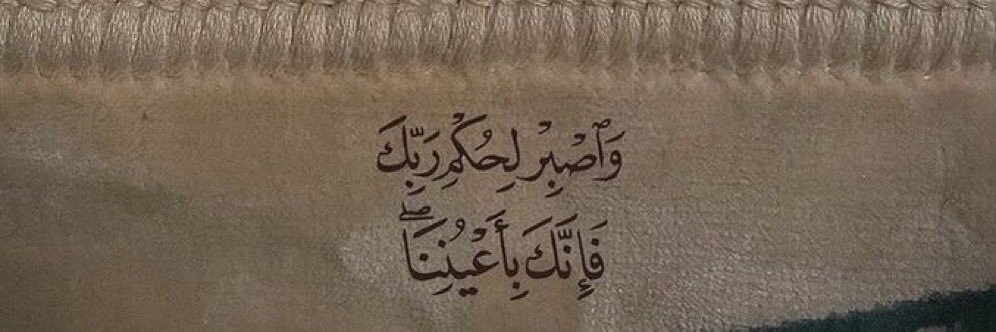 وَٱصْبِرْ لِحُكْمِ رَبِّكَ
فَإِنَّكَ بِأَعْيُنِنَا ۖ